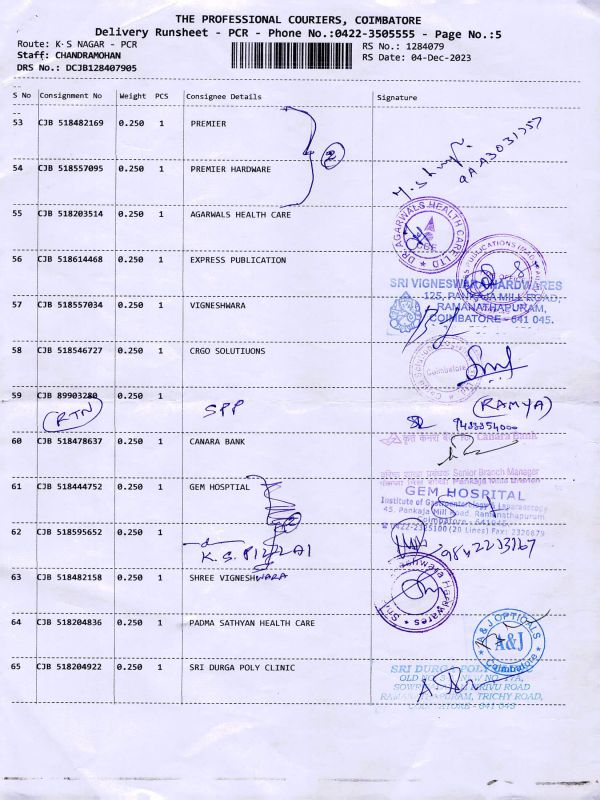 THE PROFESSIONAL COURIERS, COIMBATORE
Delivery Runsheet - PCR - Phone No.:0422-3505555 - Page No.:5
Route: K·S NAGAR - PCR
RS No.: 1284079
Staff: CHANDRAMOHAN
RS Date: 04-Dec-2023
DRS No.: DCJB128407905
S No Consignment No Weight PCS Consignee Details Signature
53 CJB 518482169 0.250 1 PREMIER
2
54 CJB 518557095 0.250 1 PREMIER HARDWARE
55 CJB 518203514 0.250 1 AGARWALS HEALTH CARE
DR AGARWALS HEALTH CARE LTD
56 CJB 518614468 0.250 1 EXPRESS PUBLICATION
SRI VIGNESWARA HARDWARES
125, PANKAJA MILL ROAD,
RAMANATHAPURAM,
COIMBATORE - 641 045.
57 CJB 518557034 0.250 1 VIGNESHWARA
58 CJB 518546727 0.250 1 CRGO SOLUTIUONS
Coimbatore
59 CJB 89903280 0.250 1
(RTN) SPP
(RAMYA)
60 CJB 518478637 0.250 1 CANARA BANK
Canara Bank
Senior Branch Manager
61 CJB 518444752 0.250 1 GEM HOSPTIAL
GEM HOSPITAL
Institute of Gastroenterology & Laparoscopy
45, Pankaja Mill Road, Ramanathapuram
Coimbatore - 641045.
62 CJB 518595652 0.250 1
K.S. PILLAI
9842233167
63 CJB 518482158 0.250 1 SHREE VIGNESHWARA
64 CJB 518204836 0.250 1 PADMA SATHYAN HEALTH CARE
A & J OPTICALS
A&J
Coimbatore
65 CJB 518204922 0.250 1 SRI DURGA POLY CLINIC
SRI DURGA POLY
TRICHY ROAD,